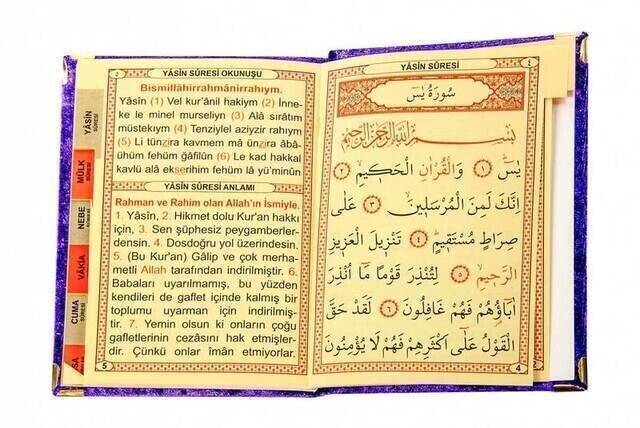 YÂSÎN SÛRESİ OKUNUŞU
Bismillâhirrahmânirrahıym.
Yâsîn (1) Vel kur'ânil hakiym (2) İnne-
ke le minel murseliyn (3) Alâ sırâtım
müstekıym (4) Tenziylel azıyzir rahıym
(5) Li tünzira kavmem mâ ünzira âbâ-
ühüm fehüm ğâfilûn (6) Le kad hakkal
kavlü alâ ekserihim fehüm lâ yü'minûn
YÂSÎN SÛRESİ ANLAMI
Rahman ve Rahim olan Allah'ın İsmiyle,
1. Yâsîn, 2. Hikmet dolu Kur'an hakkı
için, 3. Sen şüphesiz peygamberler-
densin. 4. Dosdoğru yol üzerindesin.
5. (Bu Kur'an) Gâlip ve çok merha-
metli Allah tarafından indirilmiştir. 6.
Babaları uyarılmamış, bu yüzden
kendileri de gaflet içinde kalmış bir
toplumu uyarman için indirilmiş-
tir. 7. Yemin olsun ki onların çoğu
gafletlerinin cezasını hak etmişler-
dir. Çünkü onlar îman etmiyorlar.
5
YÂSİN
SÛRESİ
MÜLK
SÛRESİ
NEBE
SÛRESİ
VÂKIA
SÛRESİ
CUMA
SÛRESİ
YÂSÎN SÛRESİ
٤
سُورَةُ يٰسٓ
بِسْمِ اللّٰهِ الرَّحْمٰنِ الرَّحِيمِ
يٰسٓ ﴿١﴾ وَالْقُرْاٰنِ الْحَكِيمِ ﴿٢﴾
اِنَّكَ لَمِنَ الْمُرْسَلِينَ ﴿٣﴾ عَلٰى
صِرَاطٍ مُسْتَقِيمٍ ﴿٤﴾ تَنْزِيلَ الْعَزِيزِ
الرَّحِيمِ ﴿٥﴾ لِتُنْذِرَ قَوْمًا مَٓا اُنْذِرَ
اٰبَٓاؤُهُمْ فَهُمْ غَافِلُونَ ﴿٦﴾ لَقَدْ حَقَّ
الْقَوْلُ عَلٰٓى اَكْثَرِهِمْ فَهُمْ لَا يُؤْمِنُونَ
4
2